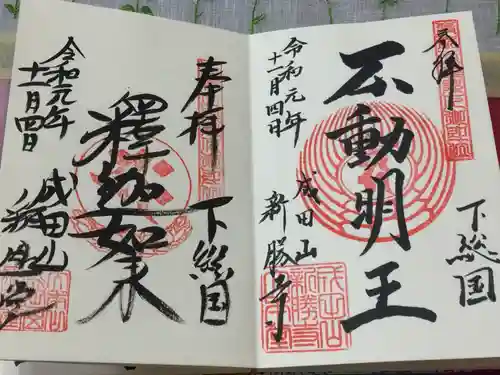 奉拝
下総国
不動明王
令和元年
十一月四日
成田山
新勝寺
奉拝
下総国
釋迦如来
令和元年
十一月四日
成田山
釋迦堂
成田山
新勝寺